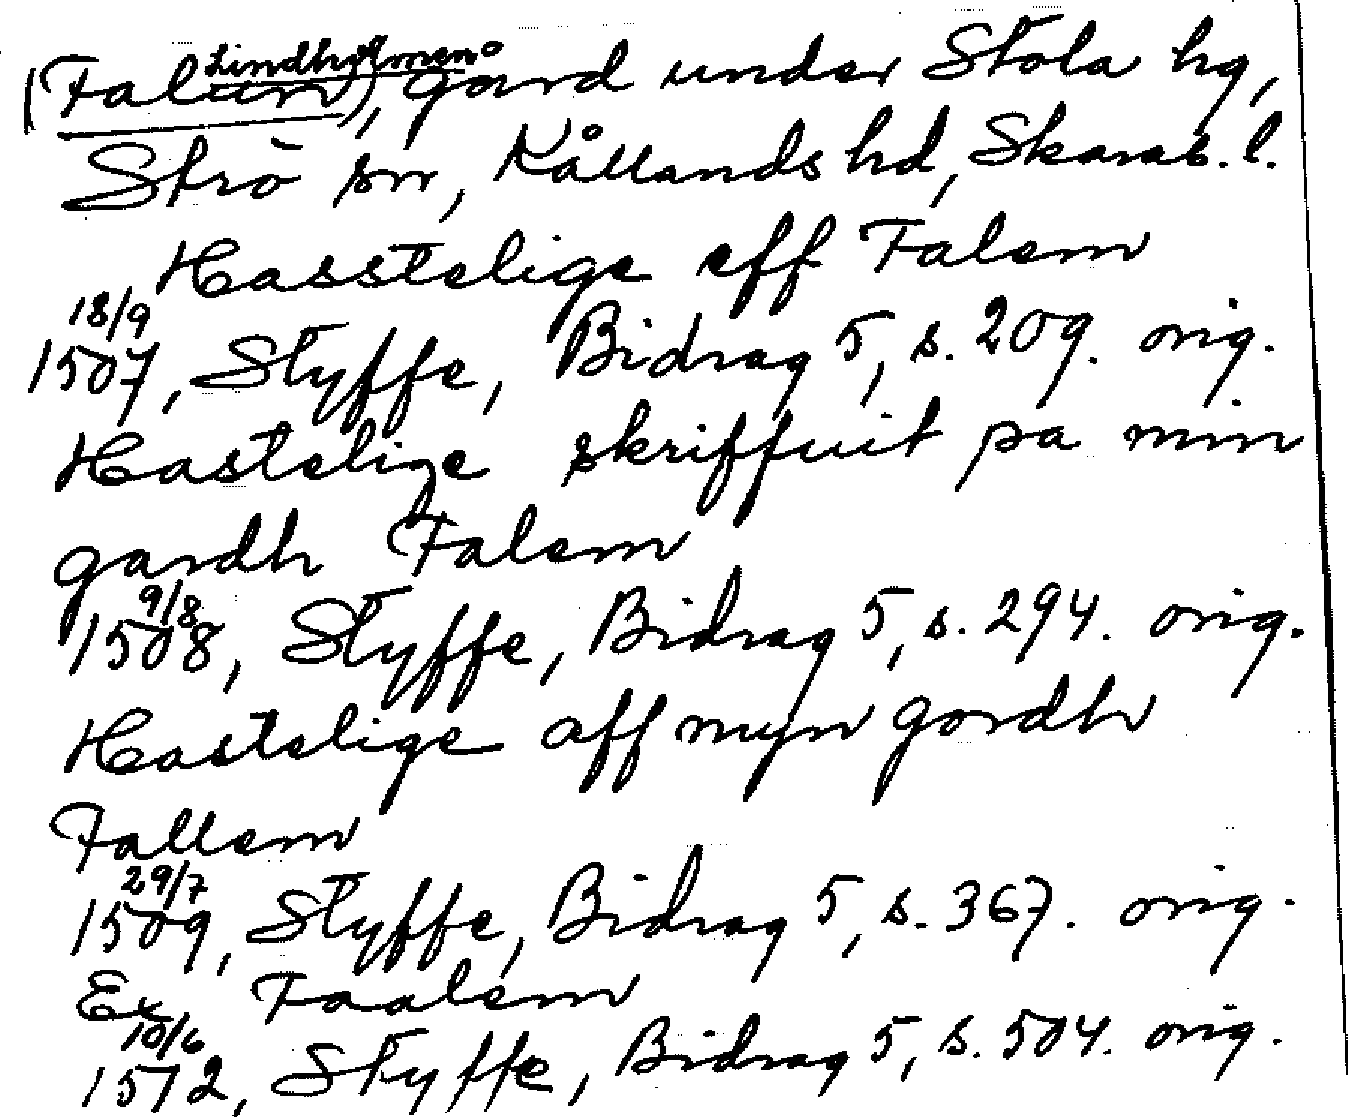 Lindholmen
(Falum), gård under Stola hg,
Strö sn, Kållands hd, Skarab. l.
Hasstelige eff Falem
18/9
1507, Styffe, Bidrag 5, s. 209. orig.
Hastelige skriffuit pa min
gardh Falem
9/8
1508, Styffe, Bidrag 5, s. 294. orig.
Hastelige aff myn gordh
Fallem
29/7
1509, Styffe, Bidrag 5, s. 367. orig.
Ex Faalem
10/6
1512, Styffe, Bidrag 5, s. 504. orig.